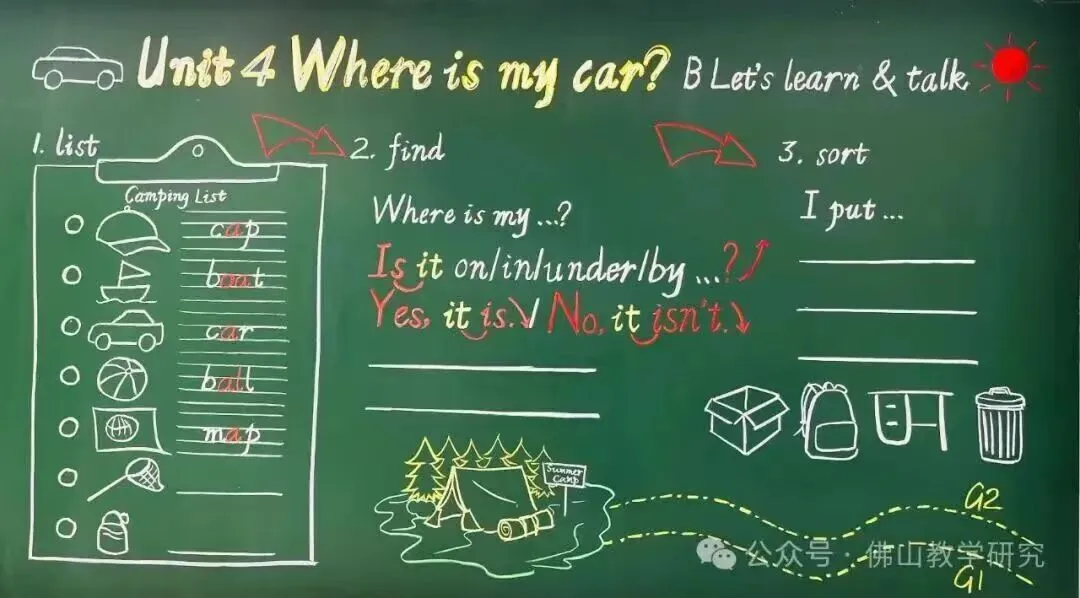 Unit 4 Where is my car? B Let's learn & talk
1. list
Camping List
cap
boat
car
ball
map
2. find
Where is my ...?
Is it on/in/under/by ...?
Yes, it is. / No, it isn't.
Summer Camp
3. sort
I put ...
G2
G1
公众号 · 佛山教学研究